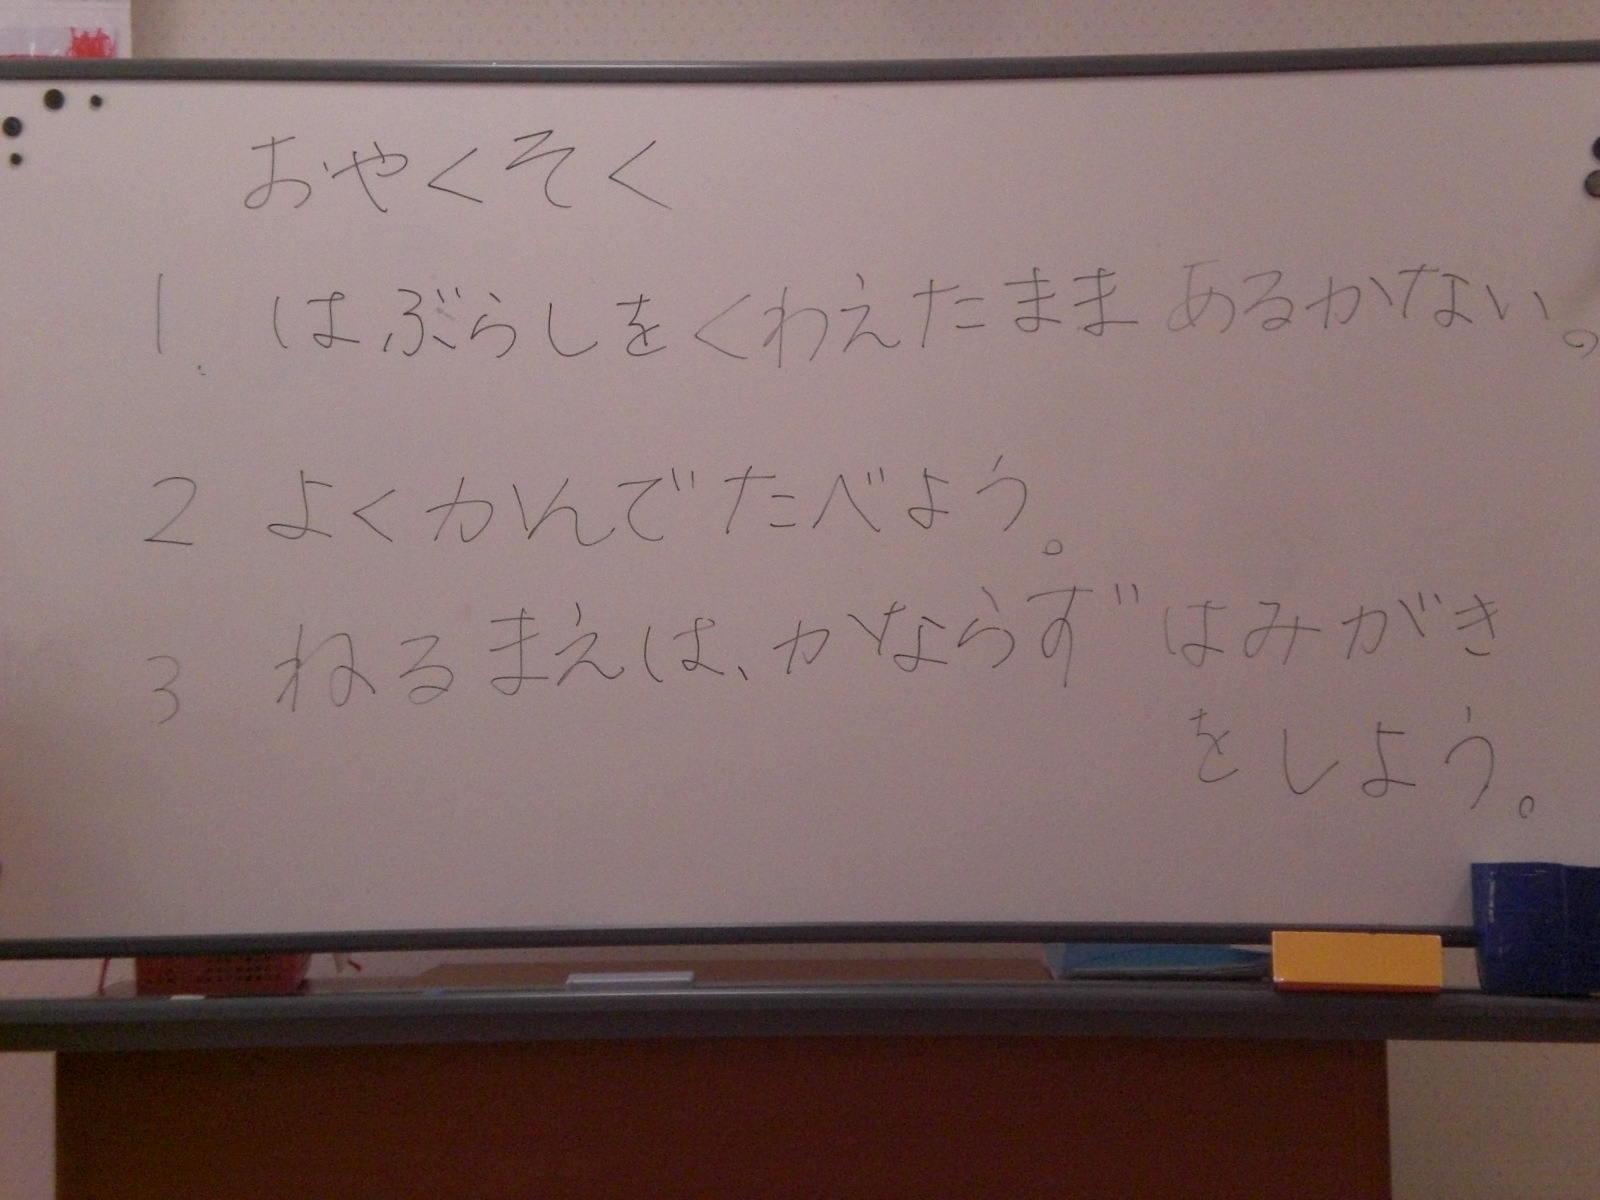 おやくそく
1. はぶらしをくわえたまま あるかない。
2 よくかんでたべよう。
3 ねるまえは、かならずはみがき
をしよう。